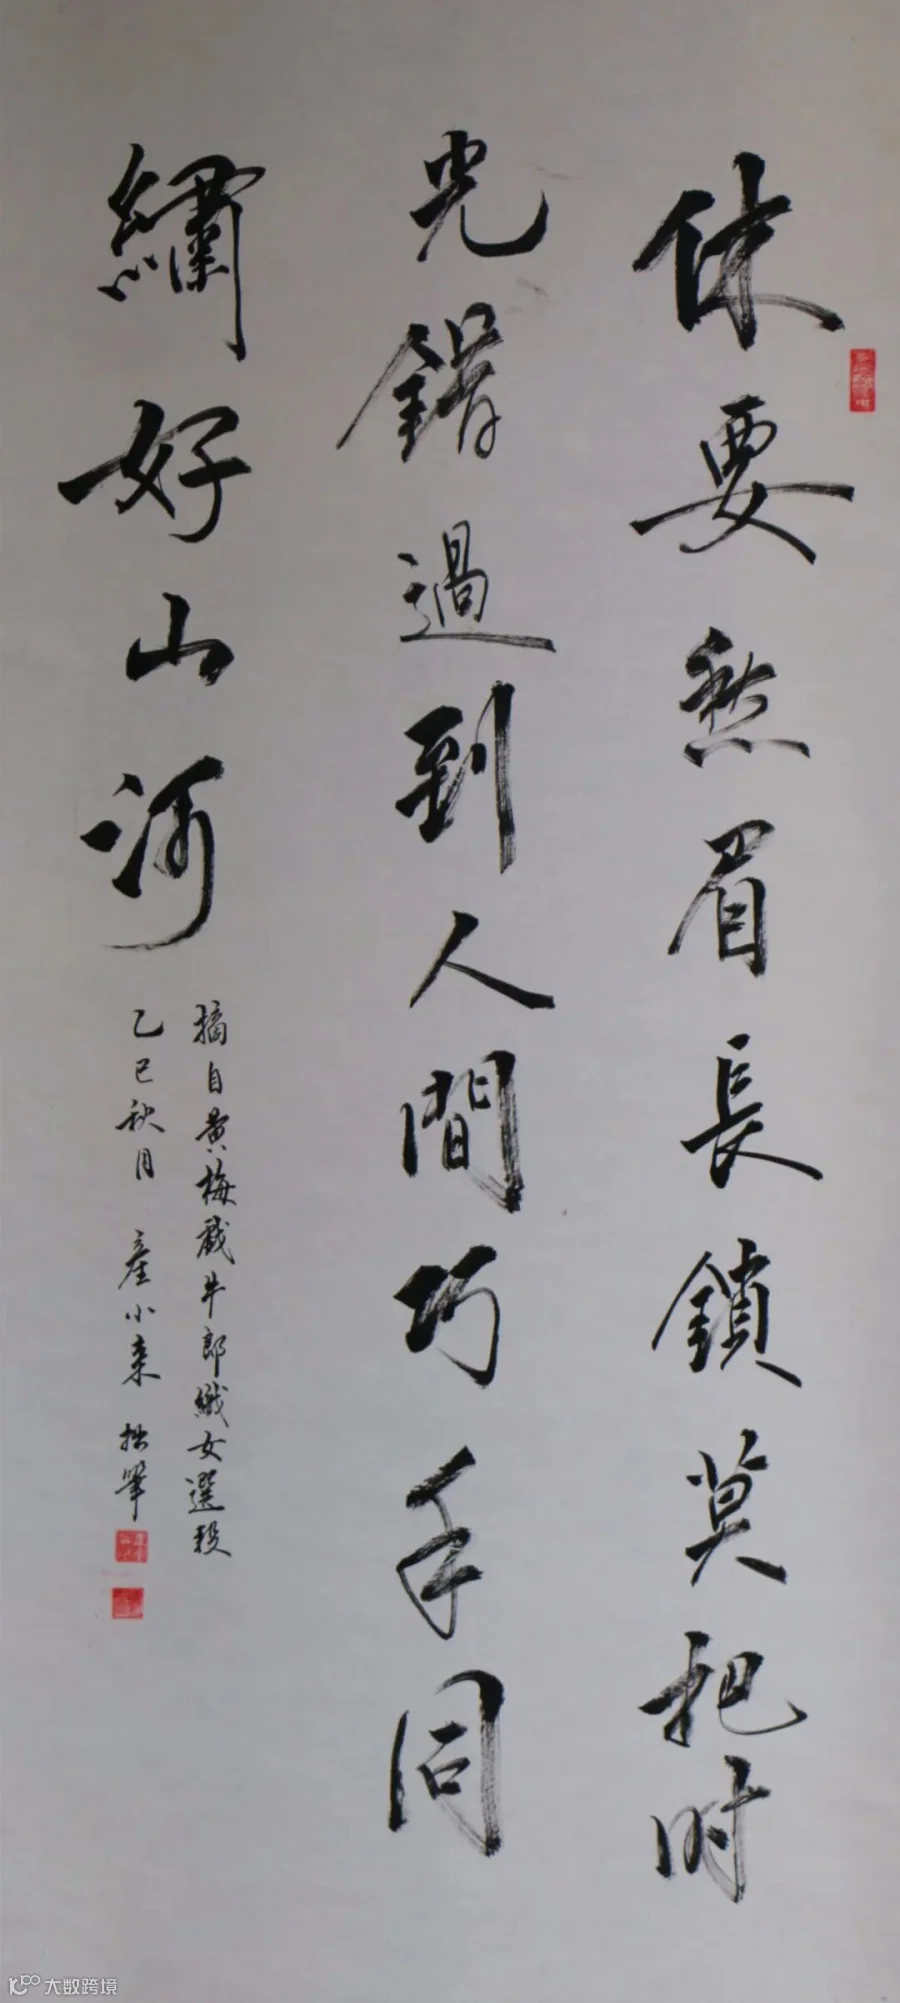 休要愁眉長鎖莫把时
光錯過到人間巧手同
繡好山河
摘自黄梅戲牛郎織女選段
乙巳秋月 産小来 拙筆
大数跨境